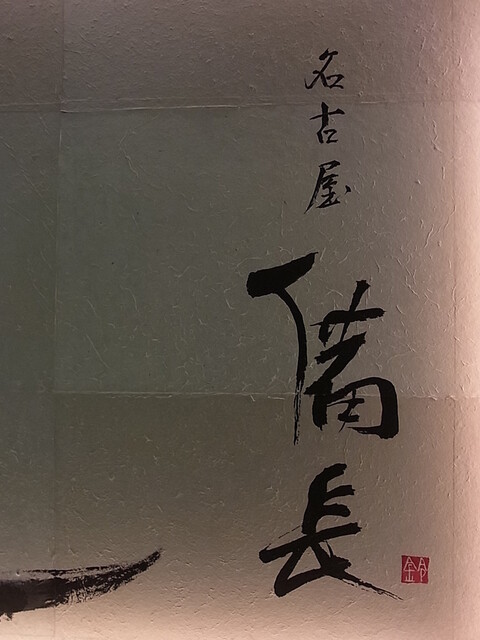 名古屋
備長
鈴